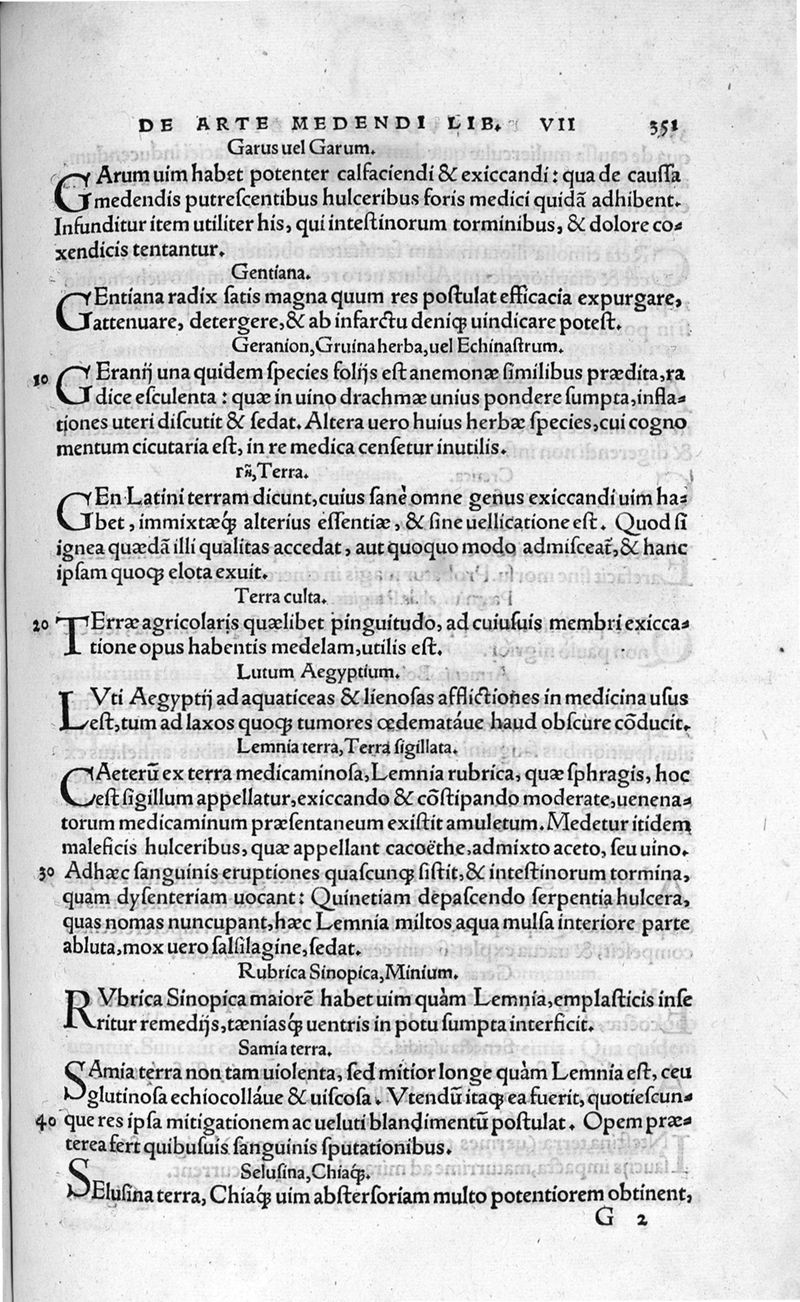 DE ARTE MEDENDI LIB. VII 351
Garus uel Garum.
GArum uim habet potenter calfaciendi & exiccandi: qua de caussa
medendis putrescentibus hulceribus foris medici quidã adhibent.
Infunditur item utiliter his, qui intestinorum torminibus, & dolore co-
xendicis tentantur.
Gentiana.
GEntiana radix satis magna quum res postulat efficacia expurgare,
attenuare, detergere, & ab infarctu deniqꝫ uindicare potest.
Geranion, Gruina herba, uel Echinastrum.
10 GEranij una quidem species folijs est anemonæ similibus prædita, ra
dice esculenta: quæ in uino drachmæ unius pondere sumpta, infla-
tiones uteri discutit & sedat. Altera uero huius herbæ species, cui cogno
mentum cicutaria est, in re medica censetur inutilis.
Terra.
GEn Latini terram dicunt, cuius sanè omne genus exiccandi uim ha-
bet, immixtæqꝫ alterius essentiæ, & sine uellicatione est. Quod si
ignea quædã illi qualitas accedat, aut quoquo modo admisceat̃, & hanc
ipsam quoqꝫ elota exuit.
Terra culta.
20 TErræ agricolaris quælibet pinguitudo, ad cuiusuis membri exicca-
tione opus habentis medelam, utilis est.
Lutum Aegyptium.
LVti Aegyptij ad aquaticeas & lienosas afflictiones in medicina usus
est, tum ad laxos quoqꝫ tumores œdematáue haud obscure cõducit.
Lemnia terra, Terra sigillata.
CAeterũ ex terra medicaminosa, Lemnia rubrica, quæ sphragis, hoc
est sigillum appellatur, exiccando & cõstipando moderate, uenena-
torum medicaminum præsentaneum existit amuletum. Medetur itidem
maleficis hulceribus, quæ appellant cacoëthe, admixto aceto, seu uino.
30 Adhæc sanguinis eruptiones quascunqꝫ sistit, & intestinorum tormina,
quàm dysenteriam uocant: Quinetiam depascendo serpentia hulcera,
quas nomas nuncupant, hæc Lemnia miltos aqua mulsa interiore parte
abluta, mox uero salsilagine, sedat.
Rubrica Sinopica, Minium.
RVbrica Sinopica maiorẽ habet uim quàm Lemnia, emplasticis inse
ritur remedijs, tæniasqꝫ uentris in potu sumpta interficit.
Samia terra.
SAmia terra non tam uiolenta, sed mitior longe quàm Lemnia est, ceu
glutinosa echiocolláue & uiscosa. Vtendũ itaqꝫ ea fuerit, quotiescun-
40 que res ipsa mitigationem ac ueluti blandimentũ postulat. Opem præ-
terea fert quibusuis sanguinis sputationibus.
Selusina, Chiaqꝫ.
SElusina terra, Chiaqꝫ uim abstersoriam multo potentiorem obtinent,
G 2